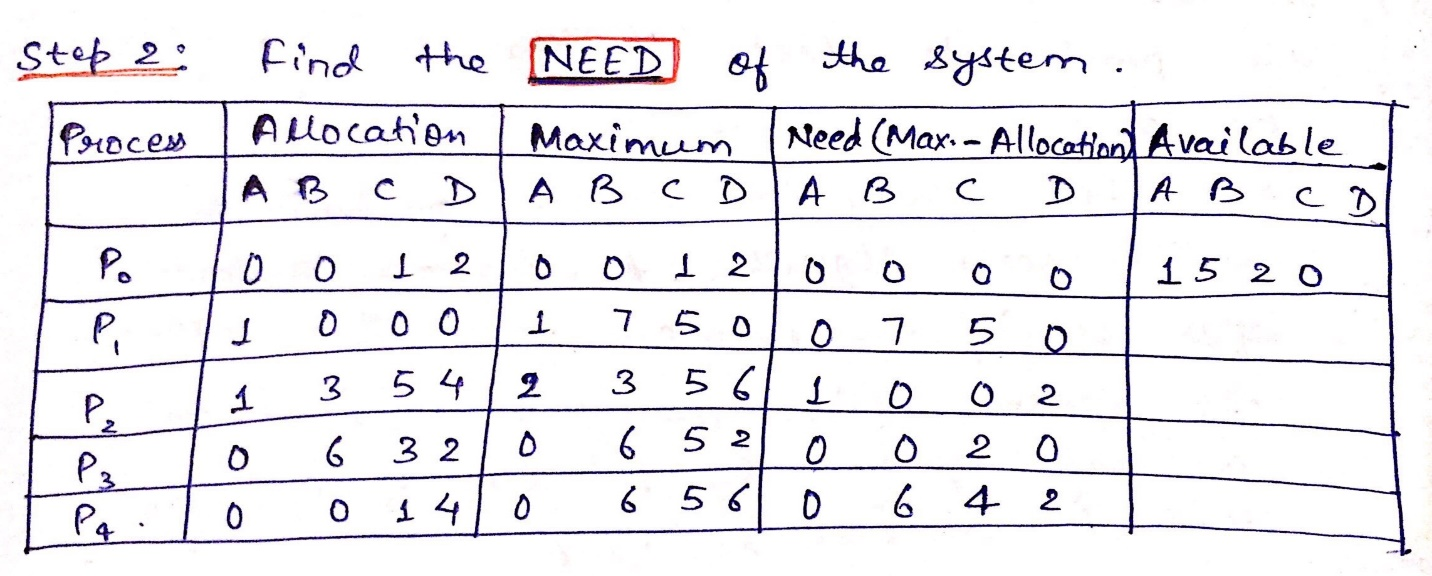 Step 2: Find the NEED of the system.
Process Allocation Maximum Need (Max. - Allocation) Available
A B C D A B C D A B C D A B C D
P0 0 0 1 2 0 0 1 2 0 0 0 0 1 5 2 0
P1 1 0 0 0 1 7 5 0 0 7 5 0
P2 1 3 5 4 2 3 5 6 1 0 0 2
P3 0 6 3 2 0 6 5 2 0 0 2 0
P4. 0 0 1 4 0 6 5 6 0 6 4 2